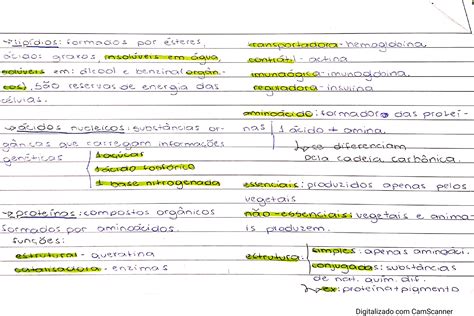 →lipídios: formados por ésteres,
ácidos graxos, insolúveis em água,
solúveis em: álcool e benzina(orgâni-
cos). São reservas de energia das
células.
→ácidos nucleicos: substâncias or-
gânicas que carregam informações
genéticas
1 açúcar
1 ácido fosfórico
1 base nitrogenada
→proteínas: compostos orgânicos
formados por aminoácidos.
funções:
estrutural - queratina
catalisadora - enzimas
transportadora - hemoglobina
contrátil - actina
imunológica - imunoglobina
reguladora - insulina
aminoácido: formador das proteí-
nas
1 ácido + amina.
↳se diferenciam
pela cadeia carbônica.
essenciais: produzidos apenas pelos
vegetais
não essenciais: vegetais e anima-
is produzem.
estrutura:
simples: apenas aminoáci.
conjugadas: substâncias
de nat. quím. dif.
↳ex: proteína + pigmento
Digitalizado com CamScanner